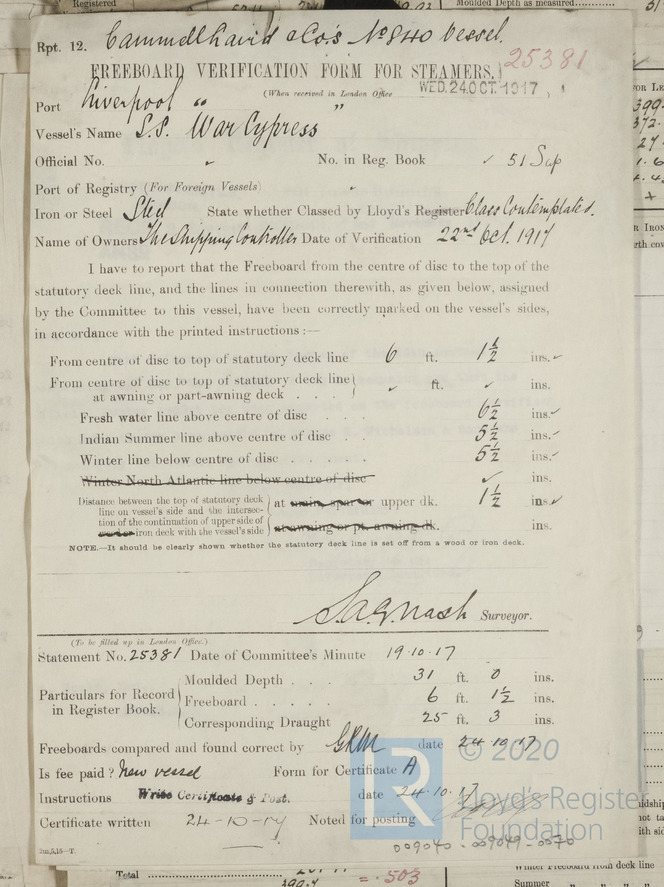 Moulded Depth as measured
Registered
Rpt. 12. Cammell Laird & Co's No 840 Vessel.
25381
FREEBOARD VERIFICATION FORM FOR STEAMERS.
(When received in London Office WED. 24 OCT. 1917
Port Liverpool " "
Vessel's Name S.S. War Cypress
Official No. No. in Reg. Book ✓ 51 Sup
Port of Registry (For Foreign Vessels)
Iron or Steel Steel State whether Classed by Lloyd's Register Class Contemplated.
Name of Owners The Shipping Controller Date of Verification 22nd Oct. 1917
I have to report that the Freeboard from the centre of disc to the top of the
statutory deck line, and the lines in connection therewith, as given below, assigned
by the Committee to this vessel, have been correctly marked on the vessel's sides,
in accordance with the printed instructions :—
From centre of disc to top of statutory deck line 6 ft. 1½ ins. ✓
From centre of disc to top of statutory deck line
at awning or part-awning deck . . . ✓ ft. ✓ ins.
Fresh water line above centre of disc . . . 6½ ins. ✓
Indian Summer line above centre of disc . . 5½ ins. ✓
Winter line below centre of disc . . . . . 5½ ins. ✓
Winter North Atlantic line below centre of disc ✓ ins.
Distance between the top of statutory deck
line on vessel's side and the intersec-
tion of the continuation of upper side of
iron deck with the vessel's side
at main, spar or upper dk. 1½ ins. ✓
at awning or pt. awning dk. ins.
NOTE.—It should be clearly shown whether the statutory deck line is set off from a wood or iron deck.
S.A.G. Nash Surveyor.
(To be filled up in London Office.)
Statement No. 25381 Date of Committee's Minute 19.10.17
Particulars for Record
in Register Book.
Moulded Depth . . . 31 ft. 0 ins.
Freeboard . . . . . 6 ft. 1½ ins.
Corresponding Draught 25 ft. 3 ins.
Freeboards compared and found correct by GRM date 24.10.17
Is fee paid? New vessel Form for Certificate A
Instructions Write Certificate & Post. date 24.10.17
Certificate written 24-10-17 Noted for posting
2m,5,15—T.
009040-009049-0070
© 2020
Lloyd's Register
Foundation
Total
= .503
Winter Freeboard from deck line
Summer